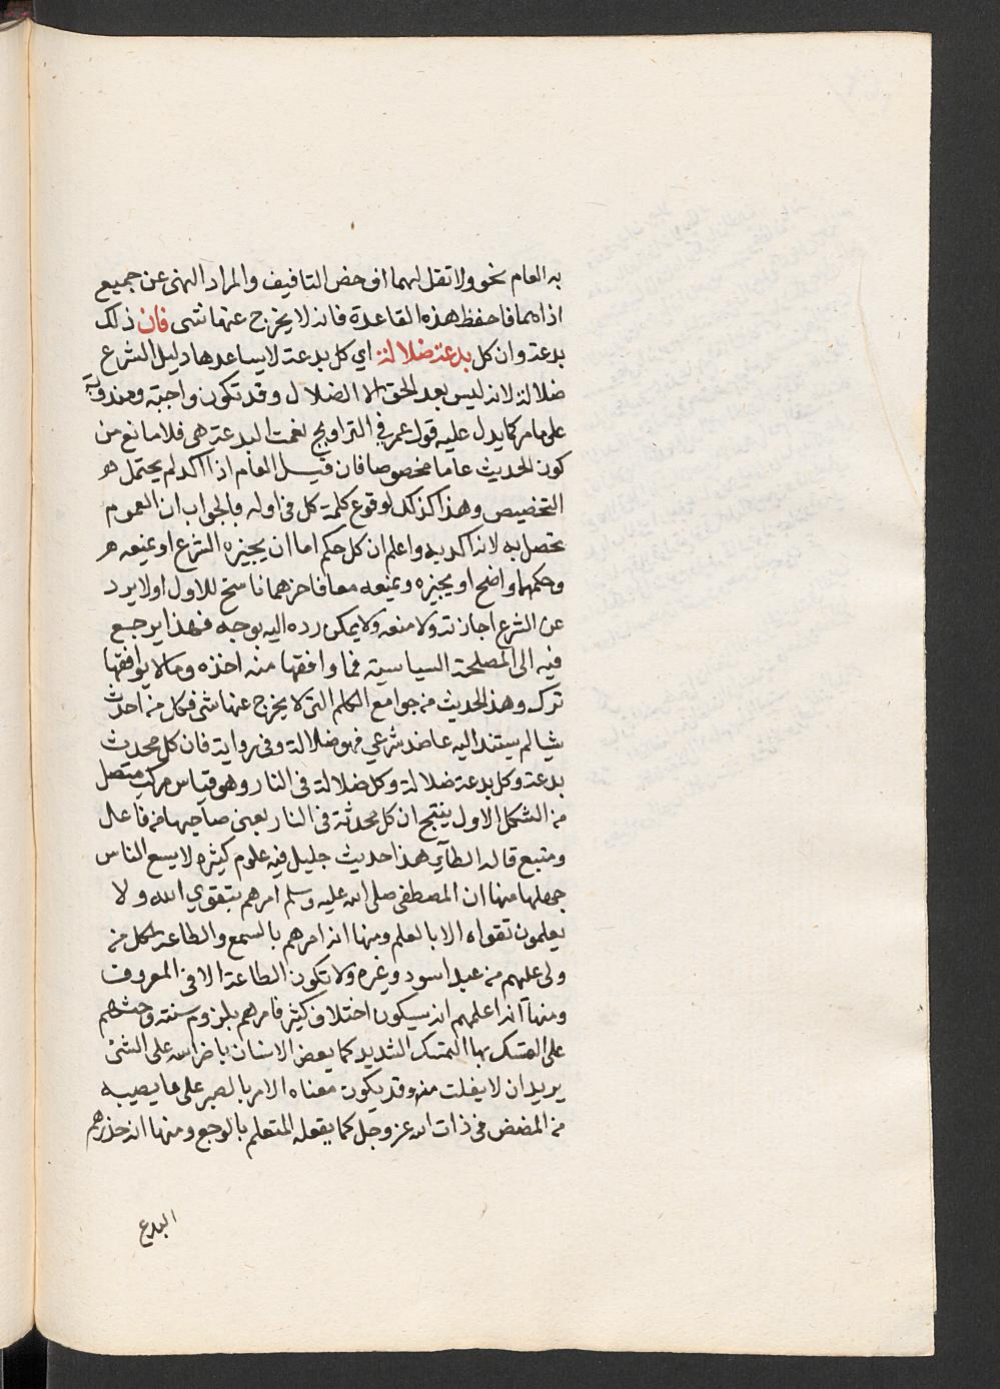 به العام نحو ولا تقل لهما اف خص التافيف والمراد النهى عن جميع
اذاهما فاحفظ هذه القاعدة فانه لا يخرج عنها شى فان ذلك
بدعة وان كل بدعة ضلالة اي كل بدعة لا يساعدها دليل الشرع
ضلالة لانه ليس بعد الحق الا الضلال وقد تكون واجبة ومندوبة
على ما مر كما يدل عليه قول عمر في التراويح نعمت البدعة هى فلا مانع من
كون الحديث عاما مخصوصا فان قيل العام اذا اكد لم يحتمل هو
التخصيص وهذا كذلك لوقوع كلمة كل فى اوله فالجواب ان العموم
تحصل به لا انه اكد به واعلم ان كل حكم اما ان يجيزه الشرع او يمنعه
وحكمهما واضح او يجيزه ويمنعه معا فاخرهما ناسخ للاول او لا يرد
عن الشرع اجازته ولا منعه ولا يمكن رده اليه بوجه فهذا يرجع
فيه الى المصلحة السياسية فما وافقها منه اخذه وما لا يوافقها
ترك وهذ الحديث من جوامع الكلم التى لا يخرج عنها شى فكل من احدث
شيا لم يستند اليه عاضد شرعي فهو ضلالة وفى رواية فان كل محدث
بدعة وكل بدعة ضلالة وكل ضلالة فى النار وهو قياس مركب متصل
من الشكل الاول ينتج ان كل محدثة فى النار يعنى صاحبها من فاعل
ومتبع قال الطآي هذا حديث جليل فيه علوم كثيره لا يسع الناس
جهلها منها ان المصطفى صلى الله عليه وسلم امرهم بتقوي الله ولا
يعلمون تقواه الا بالعلم ومنها انه امرهم بالسمع والطاعة لكل من
ولى عليهم من عبد اسود وغيره ولا تكون الطاعة الا فى المعروف
ومنها انه اعلمهم انه سيكون اختلاف كثير فامرهم بلزوم سنته وحثهم
على التمسك بها التمسك الشديد كما يعض الانسان باضراسه على الشئ
يريد ان لا يفلت منه وقد يكون معناه الامر بالصبر على ما يصيبه
من المضض فى ذات الله عز وجل كما يفعله المتعلم بالوجع ومنها انه حذرهم
البدع